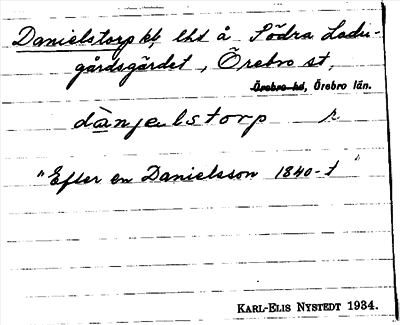 Danielstorp kl, lht å Södra Ladu-
gårdsgärdet, Örebro st,
Örebro hd, Örebro län.
dànjelstorp
"Efter en Danielsson 1840-t"
KARL-ELIS NYSTEDT 1934.